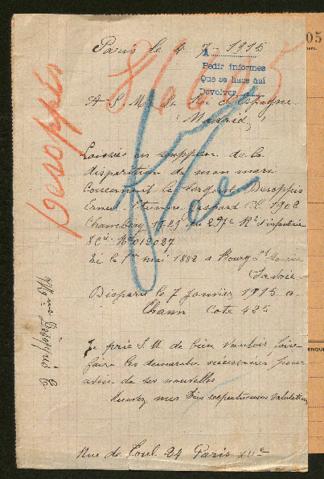 Paris le 4 7 - 1915
Pedir informes
Que se hace aqui
Devolver
A S. M. le Roi d'Espagne
Madrid
disparition de son mari
concernant le Sergent Desoppis
Ernest Etienne Gaspard Cl. 1902
Chambéry 1129 au 297e Rt d'infanterie
8 Cie No 012027
Né le 1er mai 1882 à Bourg St Maurice
Savoie
Disparu le 7 Janvier 1915 a
Thann Cote 425
Je prie S. M. de bien vouloir faire
faire les démarches nécessaires pour
avoir de ses nouvelles
mes très respectueuses salutations
Rue de Toul 24 Paris XIIe
Desoppis
Vu